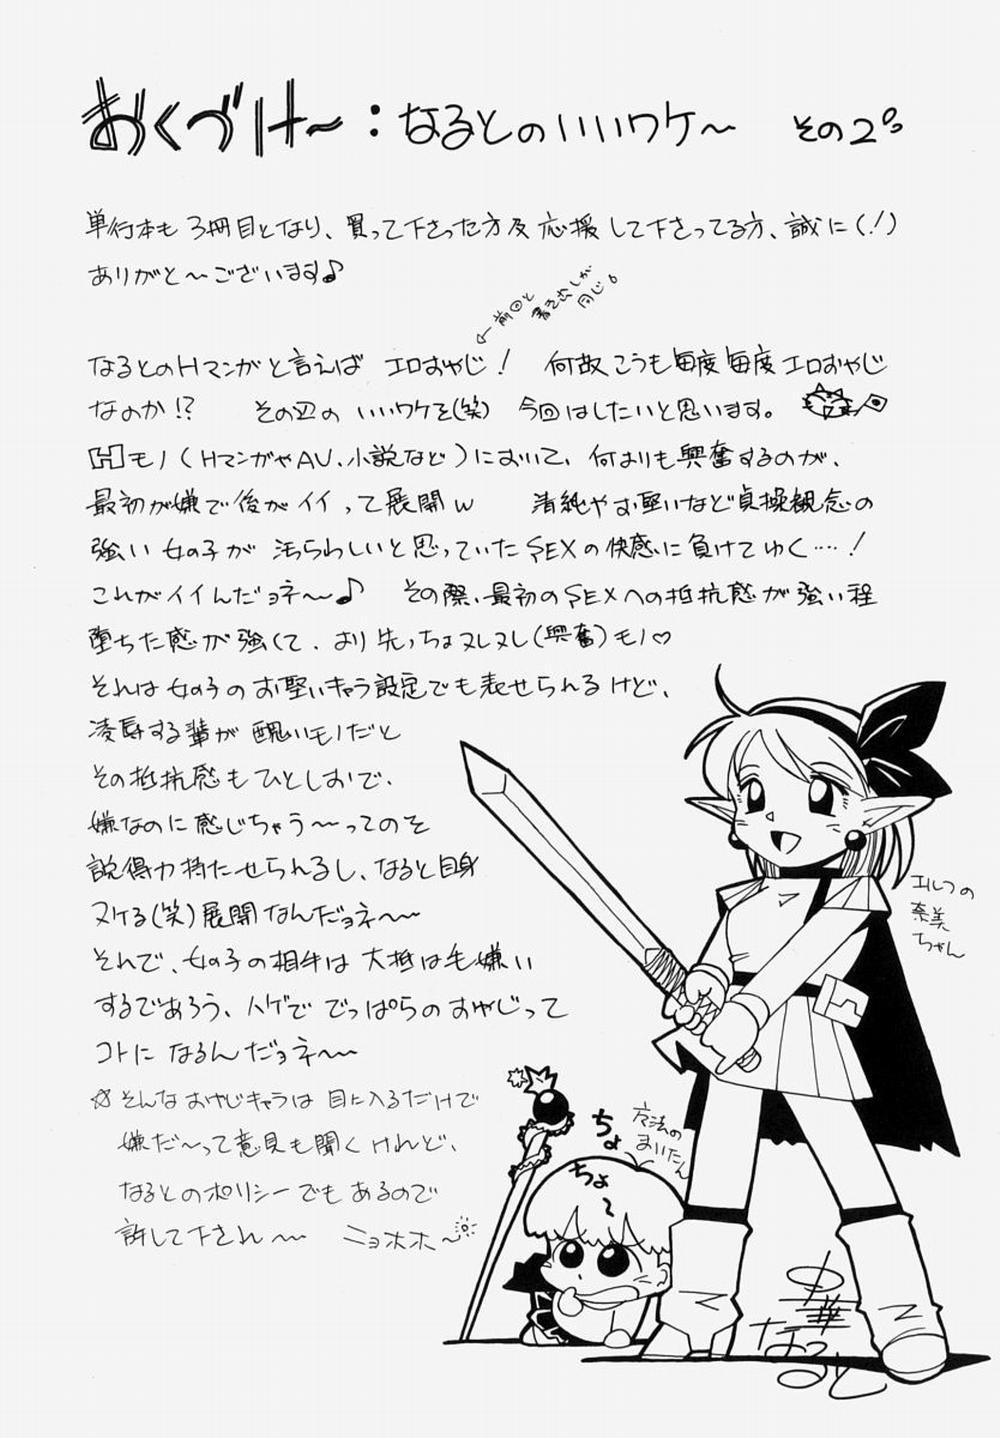 おくづけ～：なるとのいいワケ～　その2。
単行本も 3冊目となり、買って下さった方及 応援 して下さってる方、誠に(!)
ありがと～ございます♪
←前回と
書き出しが
同じ。
なるとのHマンガと言えば エロおやじ! 何故こうも毎度毎度エロおやじ
なのか!? その辺の いいワケを(笑) 今回はしたいと思います。
Hモノ(HマンガやAV、小説など)において、何よりも興奮するのが、
最初が嫌で後がイイって展開w 清純やお堅いなど貞操観念の
強い 女の子が 汚らわしいと思っていたSEXの快感に負けてゆく…!
これがイイんだョネ～♪ その際、最初のSEXへの抵抗感が強い程
堕ちた感が強くて、より先っちょヌレヌレ(興奮)モノ♡
それは女の子のお堅いキャラ設定でも表せられるけど、
凌辱する輩が醜いモノだと
その抵抗感もひとしおで、
嫌なのに感じちゃう～ってのを
説得力持たせられるし、なると自身
ヌケる(笑)展開なんだョネ～～
それで、女の子の相手は大抵は毛嫌い
するであろう、ハゲで でっぱらのおやじって
コトに なるんだョネ～～
☆そんなおやじキャラは 目に入るだけで
嫌だ～って意見も聞くけれど、
なるとのポリシーでもあるので
許して下され～～ ニョホホ～
エルフの
奈美
ちゃん
ちょ
ちょ～
魔法の
まいたん
中華
なると